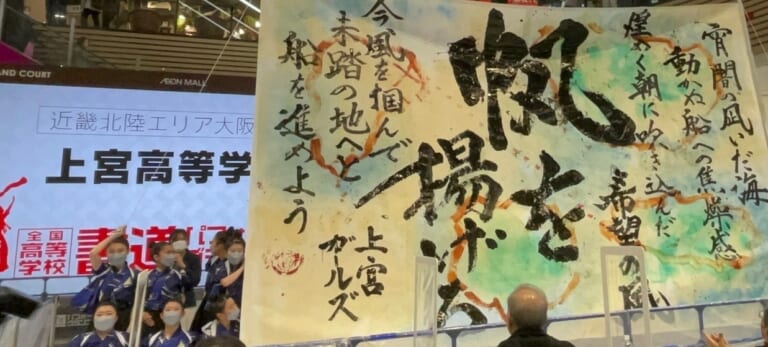 AND COURT
ÆON MALL
近畿北陸エリア大阪
上宮高等学
全国
高等
学校
書道
宵闇の凪いだ海
動かぬ船への焦燥感
煌めく朝に吹き込んだ
希望の風
帆を
揚げろ
今風を掴んで
未踏の地へと
船を進めよう
上宮
ガールズ